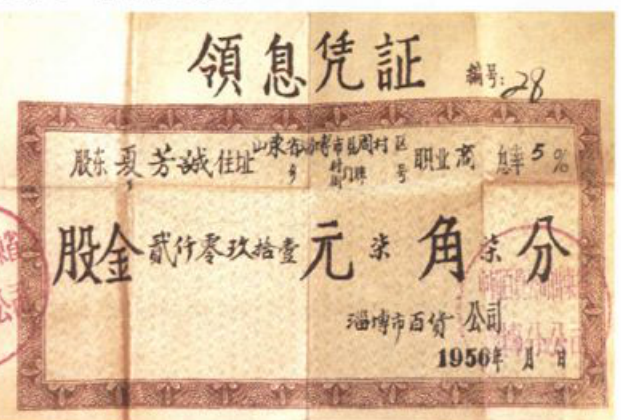 領息凭証
編号: 28
股东 夏芳誠 住址 山東省淄博市县周村区 乡 村街 门牌 号 职业 商 息率 5 %
股金 貳仟零玖拾壹 元 柒 角 柒 分
淄博市百货 公司
1956年 月 日